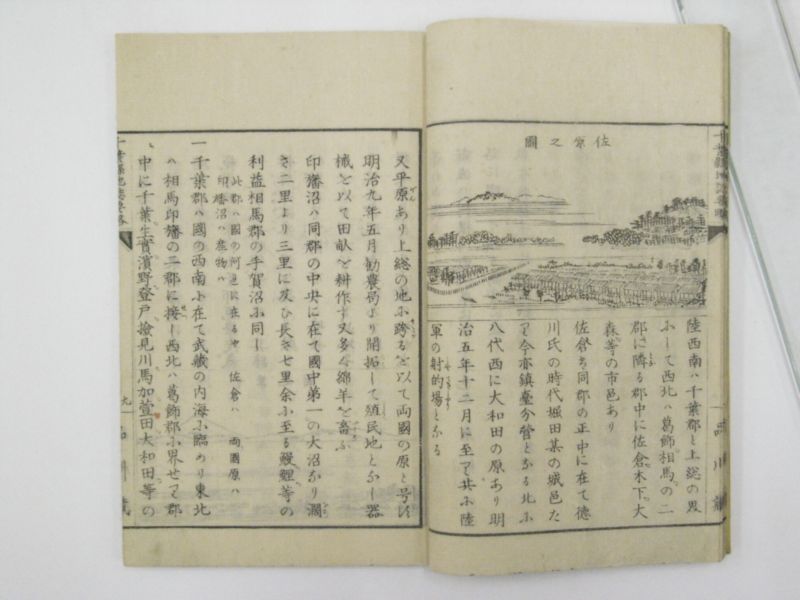 佐原之圖
陸西南ハ千葉郡と上総の界
ふして西北ハ葛飾相馬の二
郡に隣る郡中に佐倉木下大
森等の市邑あり
佐倉ハ同郡の正中に在て徳
川氏の時代堀田某の城邑た
り今亦鎮臺分營となる北ふ
八代西に大和田の原あり明
治五年十二月に至り共ふ陸
軍の射的場となる
又平原あり上総の地ふ跨るを以て両國の原と号け
明治九年五月勧農局より開拓して殖民地となし器
械を以て田畝を耕作す又多く綿羊を畜ふ
印旛沼ハ同郡の中央に在て國中第一の大沼なり濶
さ二里より三里に及ひ長さ七里余ふ至る鰻鯉等の
利益相馬郡の手賀沼ふ同し
此郡ハ國の何邊に在るや 佐倉ハ 両國原ハ
印旛沼ハ 産物ハ
一千葉郡ハ國の西南ふ在て武藏の内海ふ臨めり東北
ハ相馬印旛の二郡に接し西北ハ葛飾郡ふ界せり郡
中に千葉生實濱野登戸撿見川馬加萱田大和田等の
九